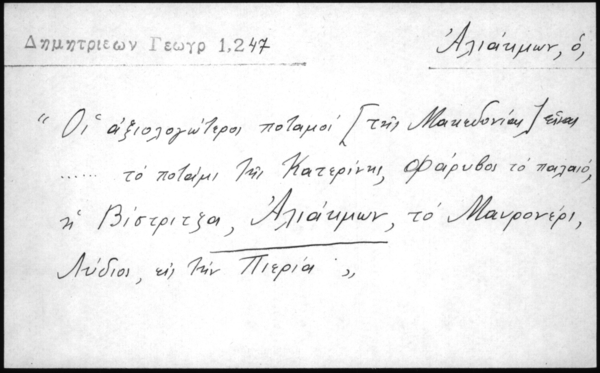 Δημητριεων Γεωγρ 1,247
Ἁλιάκμων, ὁ,
"Οἱ ἀξιολογώτεροι ποταμοί [τῆς Μακεδονίας] εἶναι
...... τὸ ποτάμι τῆς Κατερίνης, Φάρυβος τὸ παλαιό,
ἡ Βίστριτζα, Ἁλιάκμων, τὸ Μαυρονέρι,
Λύδιος, εἰς τὴν Πιερία"